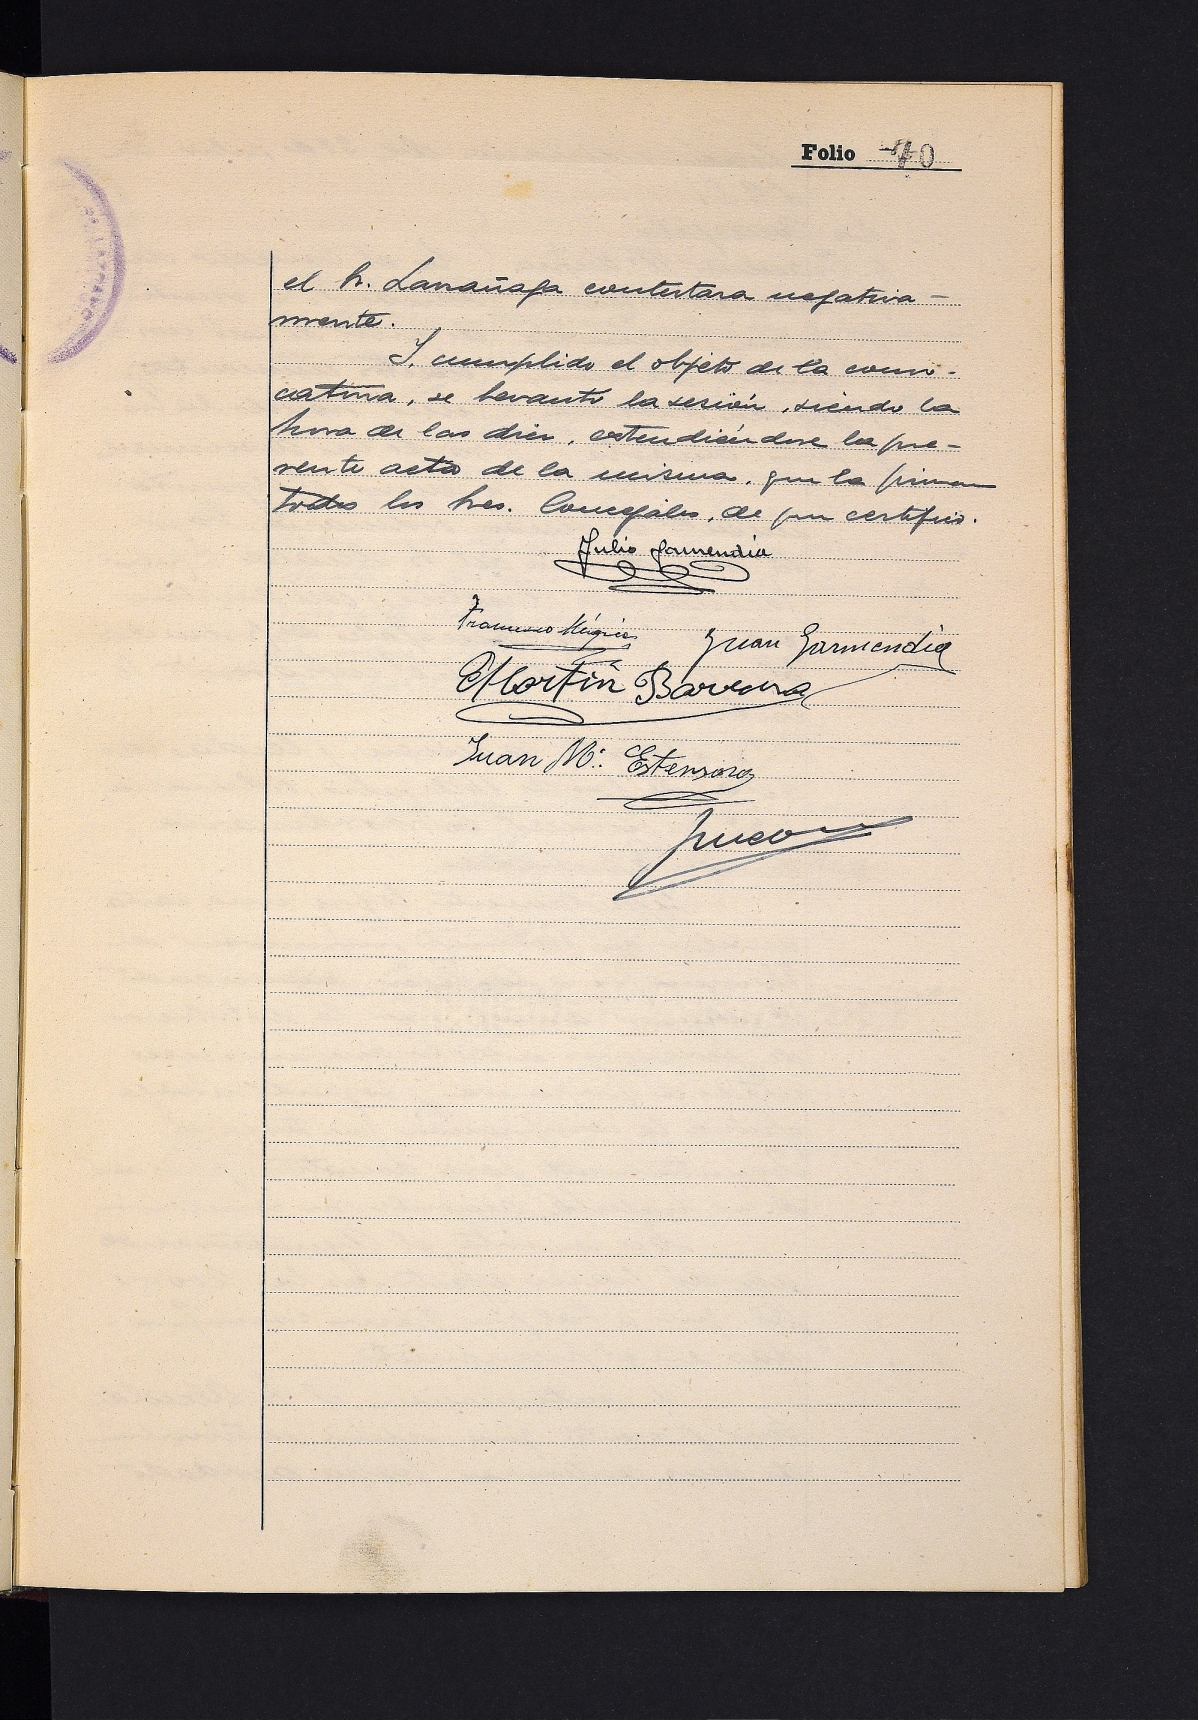 Folio 40
el Sr. Larrañaga contestara negativa-
mente.
Y, cumplido el objeto de la convo-
catoria, se levantó la sesión, siendo la
hora de las diez, extendiéndose la pre-
sente acta de la misma, que la firman
todos los Sres. Concejales, de que certifico.
Julio Garmendia
Francisco Múgica
Juan Garmendia
Martín Barrena
Juan Mª. Estensoro